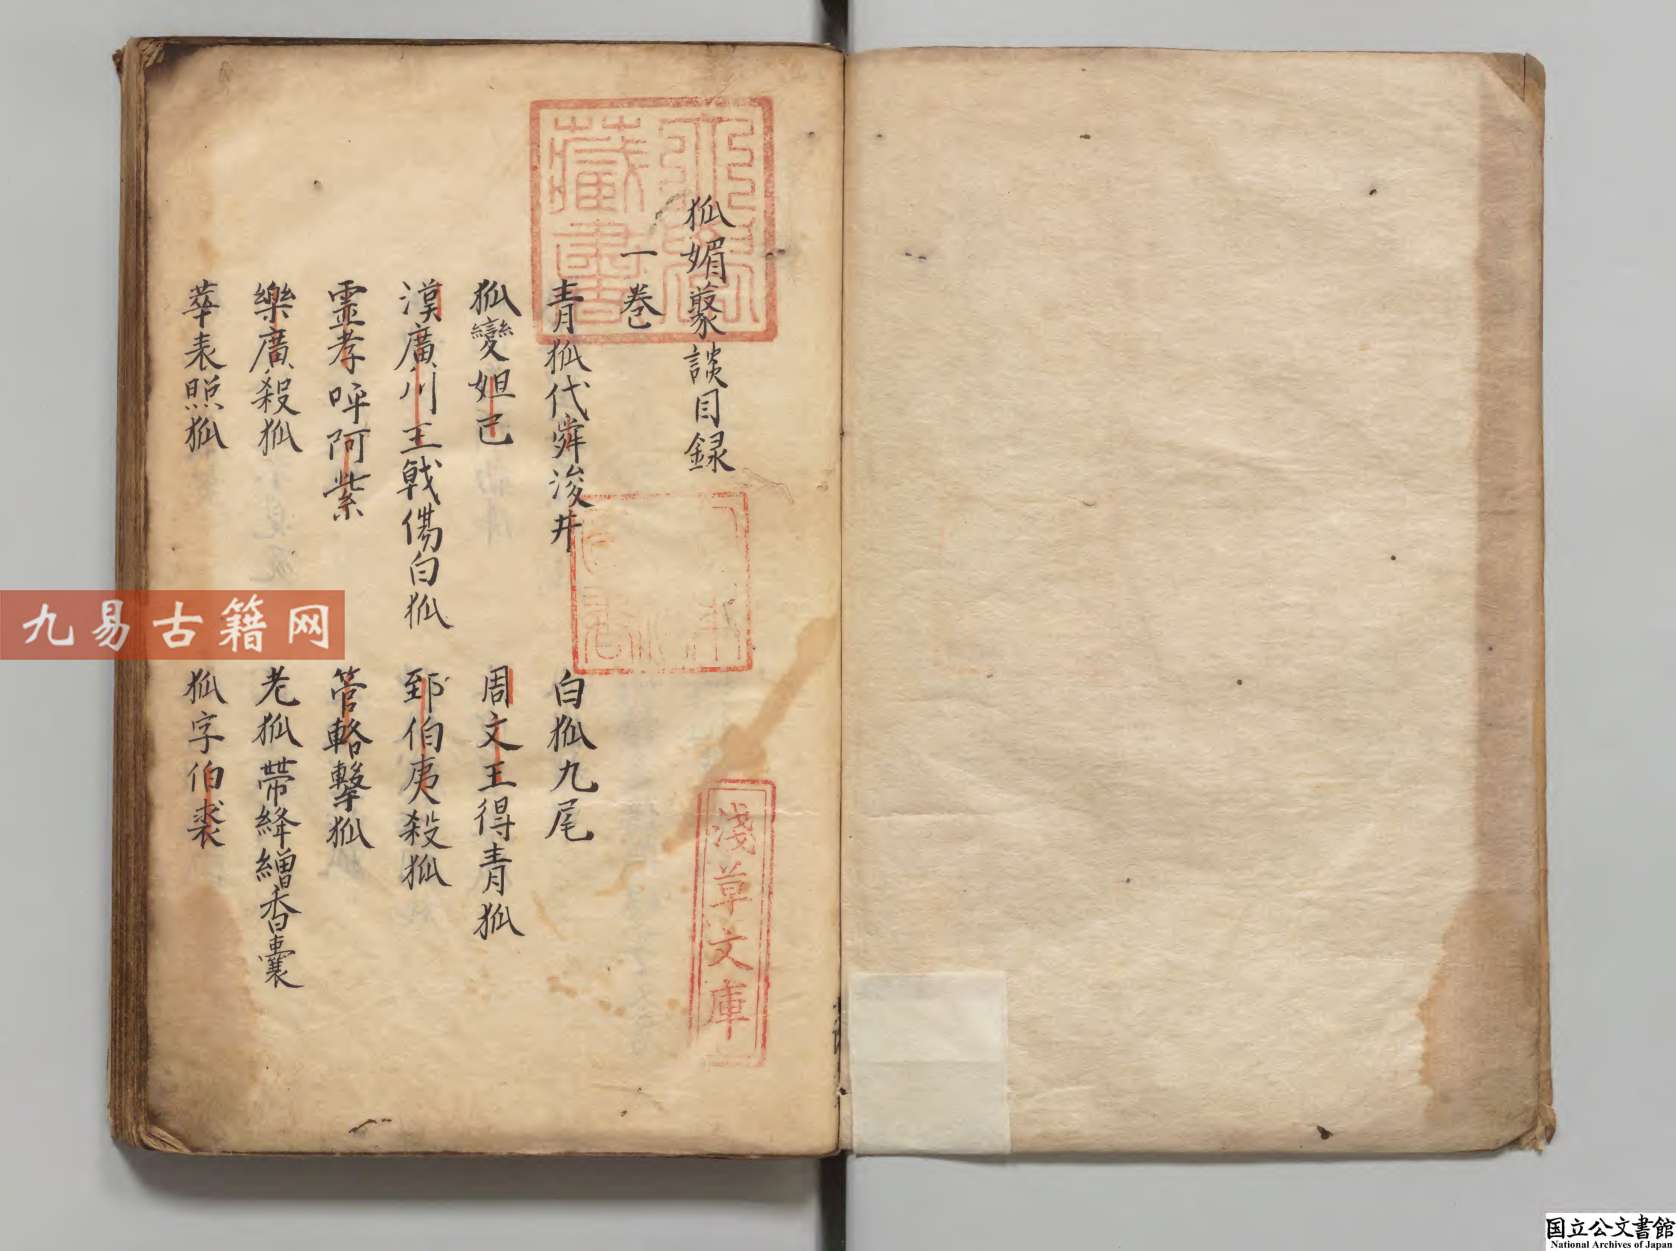 狐媚藂談目録
一巻
青狐代舜浚井
白狐九尾
狐變妲己
周文王得青狐
漢廣川王戟傷白狐
郅伯夷殺狐
靈孝呼阿紫
管輅擊狐
樂廣殺狐
老狐帶絳繒香囊
華表照狐
狐字伯裘
藏書
淺草文庫
九易古籍网
国立公文書館
National Archives of Japan